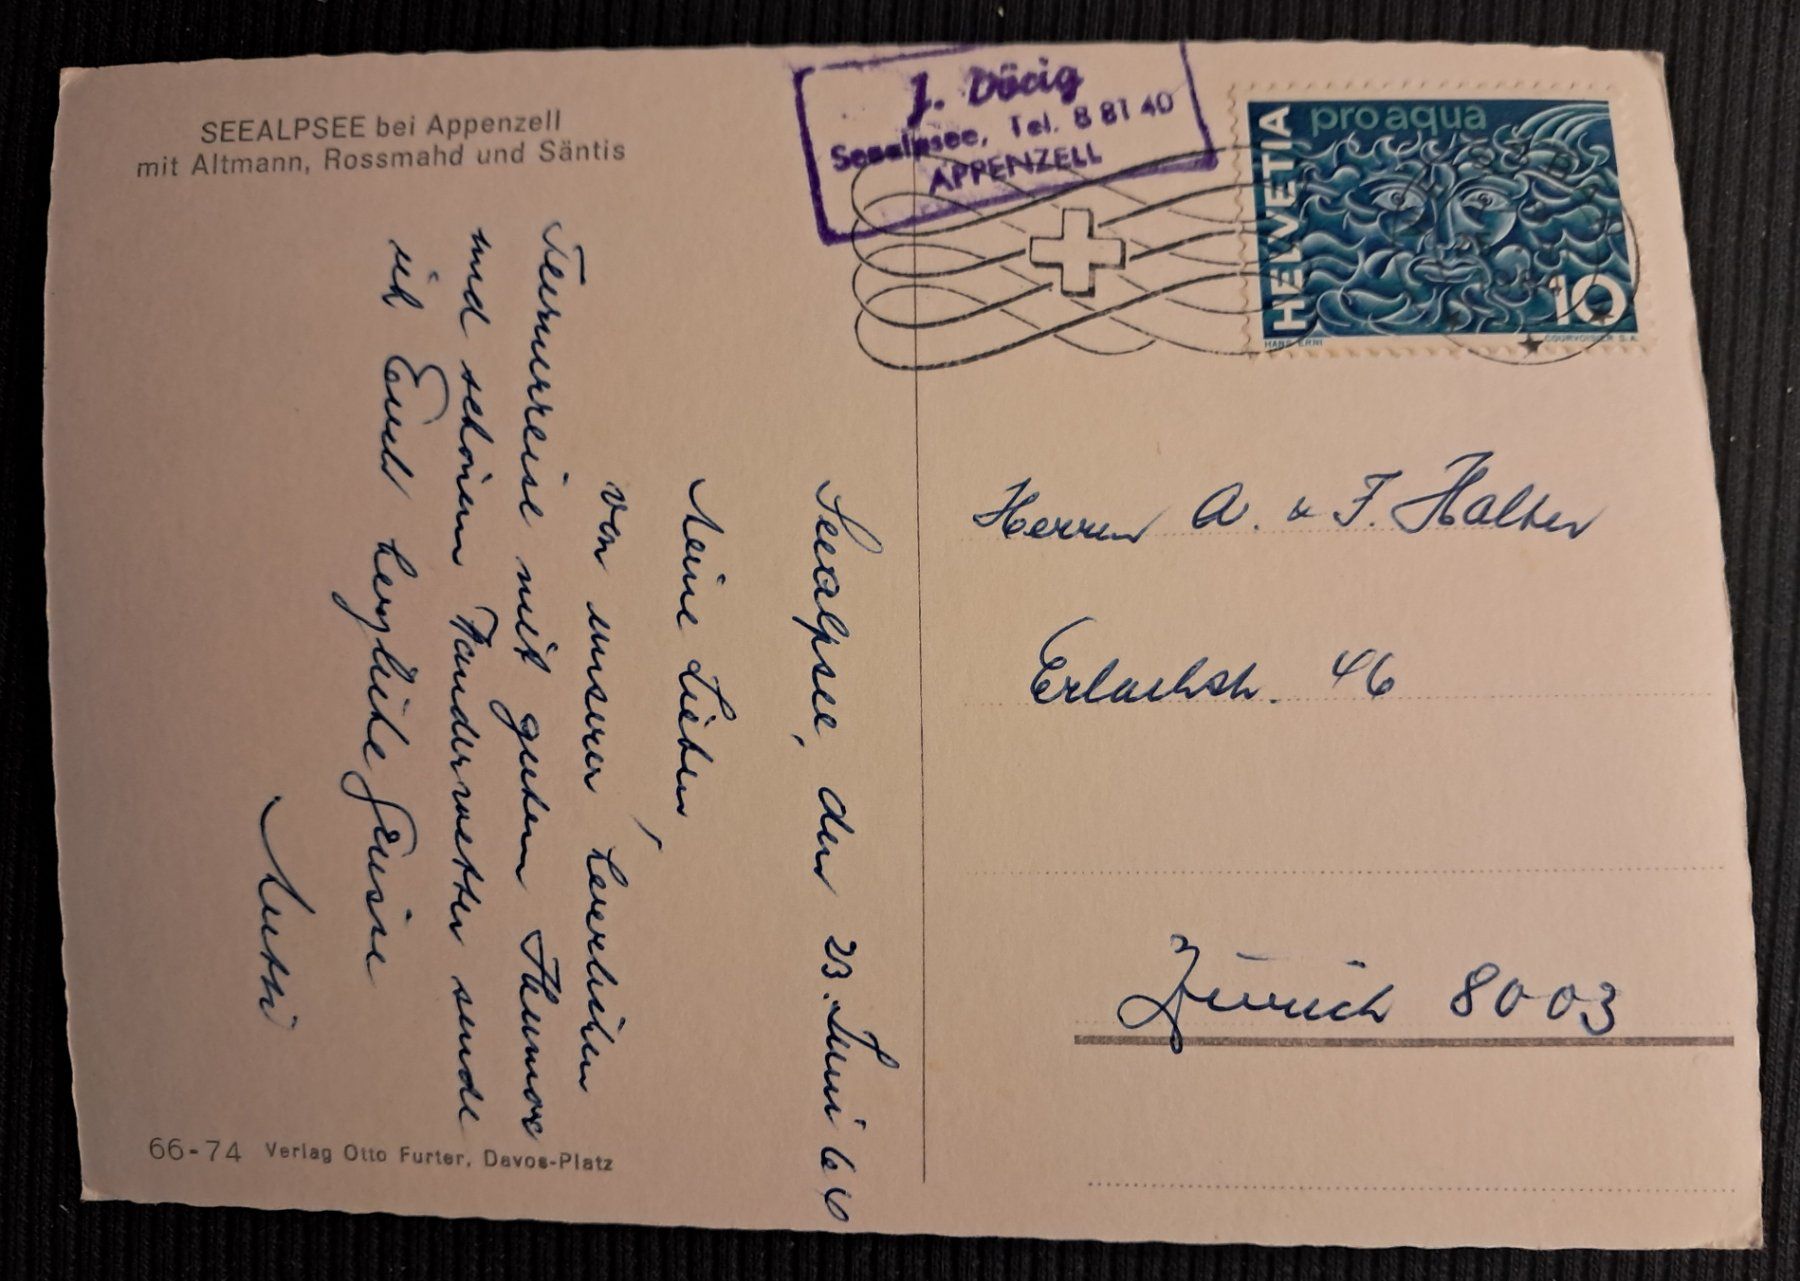 SEEALPSEE bei Appenzell
mit Altmann, Rossmahd und Säntis
J. Dörig
Seealpsee, Tel. 8 81 40
APPENZELL
HELVETIA
pro aqua
10
HANS ERNI
COURVOISIER S.A.
Seealpsee, den 23. Juni 66
Meine Lieben,
von unserer herrlichen
Turnerreise mit gutem Humor
und schönem Wanderwetter sende
ich Euch herzliche Grüsse
Mutti
Herren A. & F. Halter
Erlachstr. 46
Zürich 8003
66-74 Verlag Otto Furter, Davos-Platz